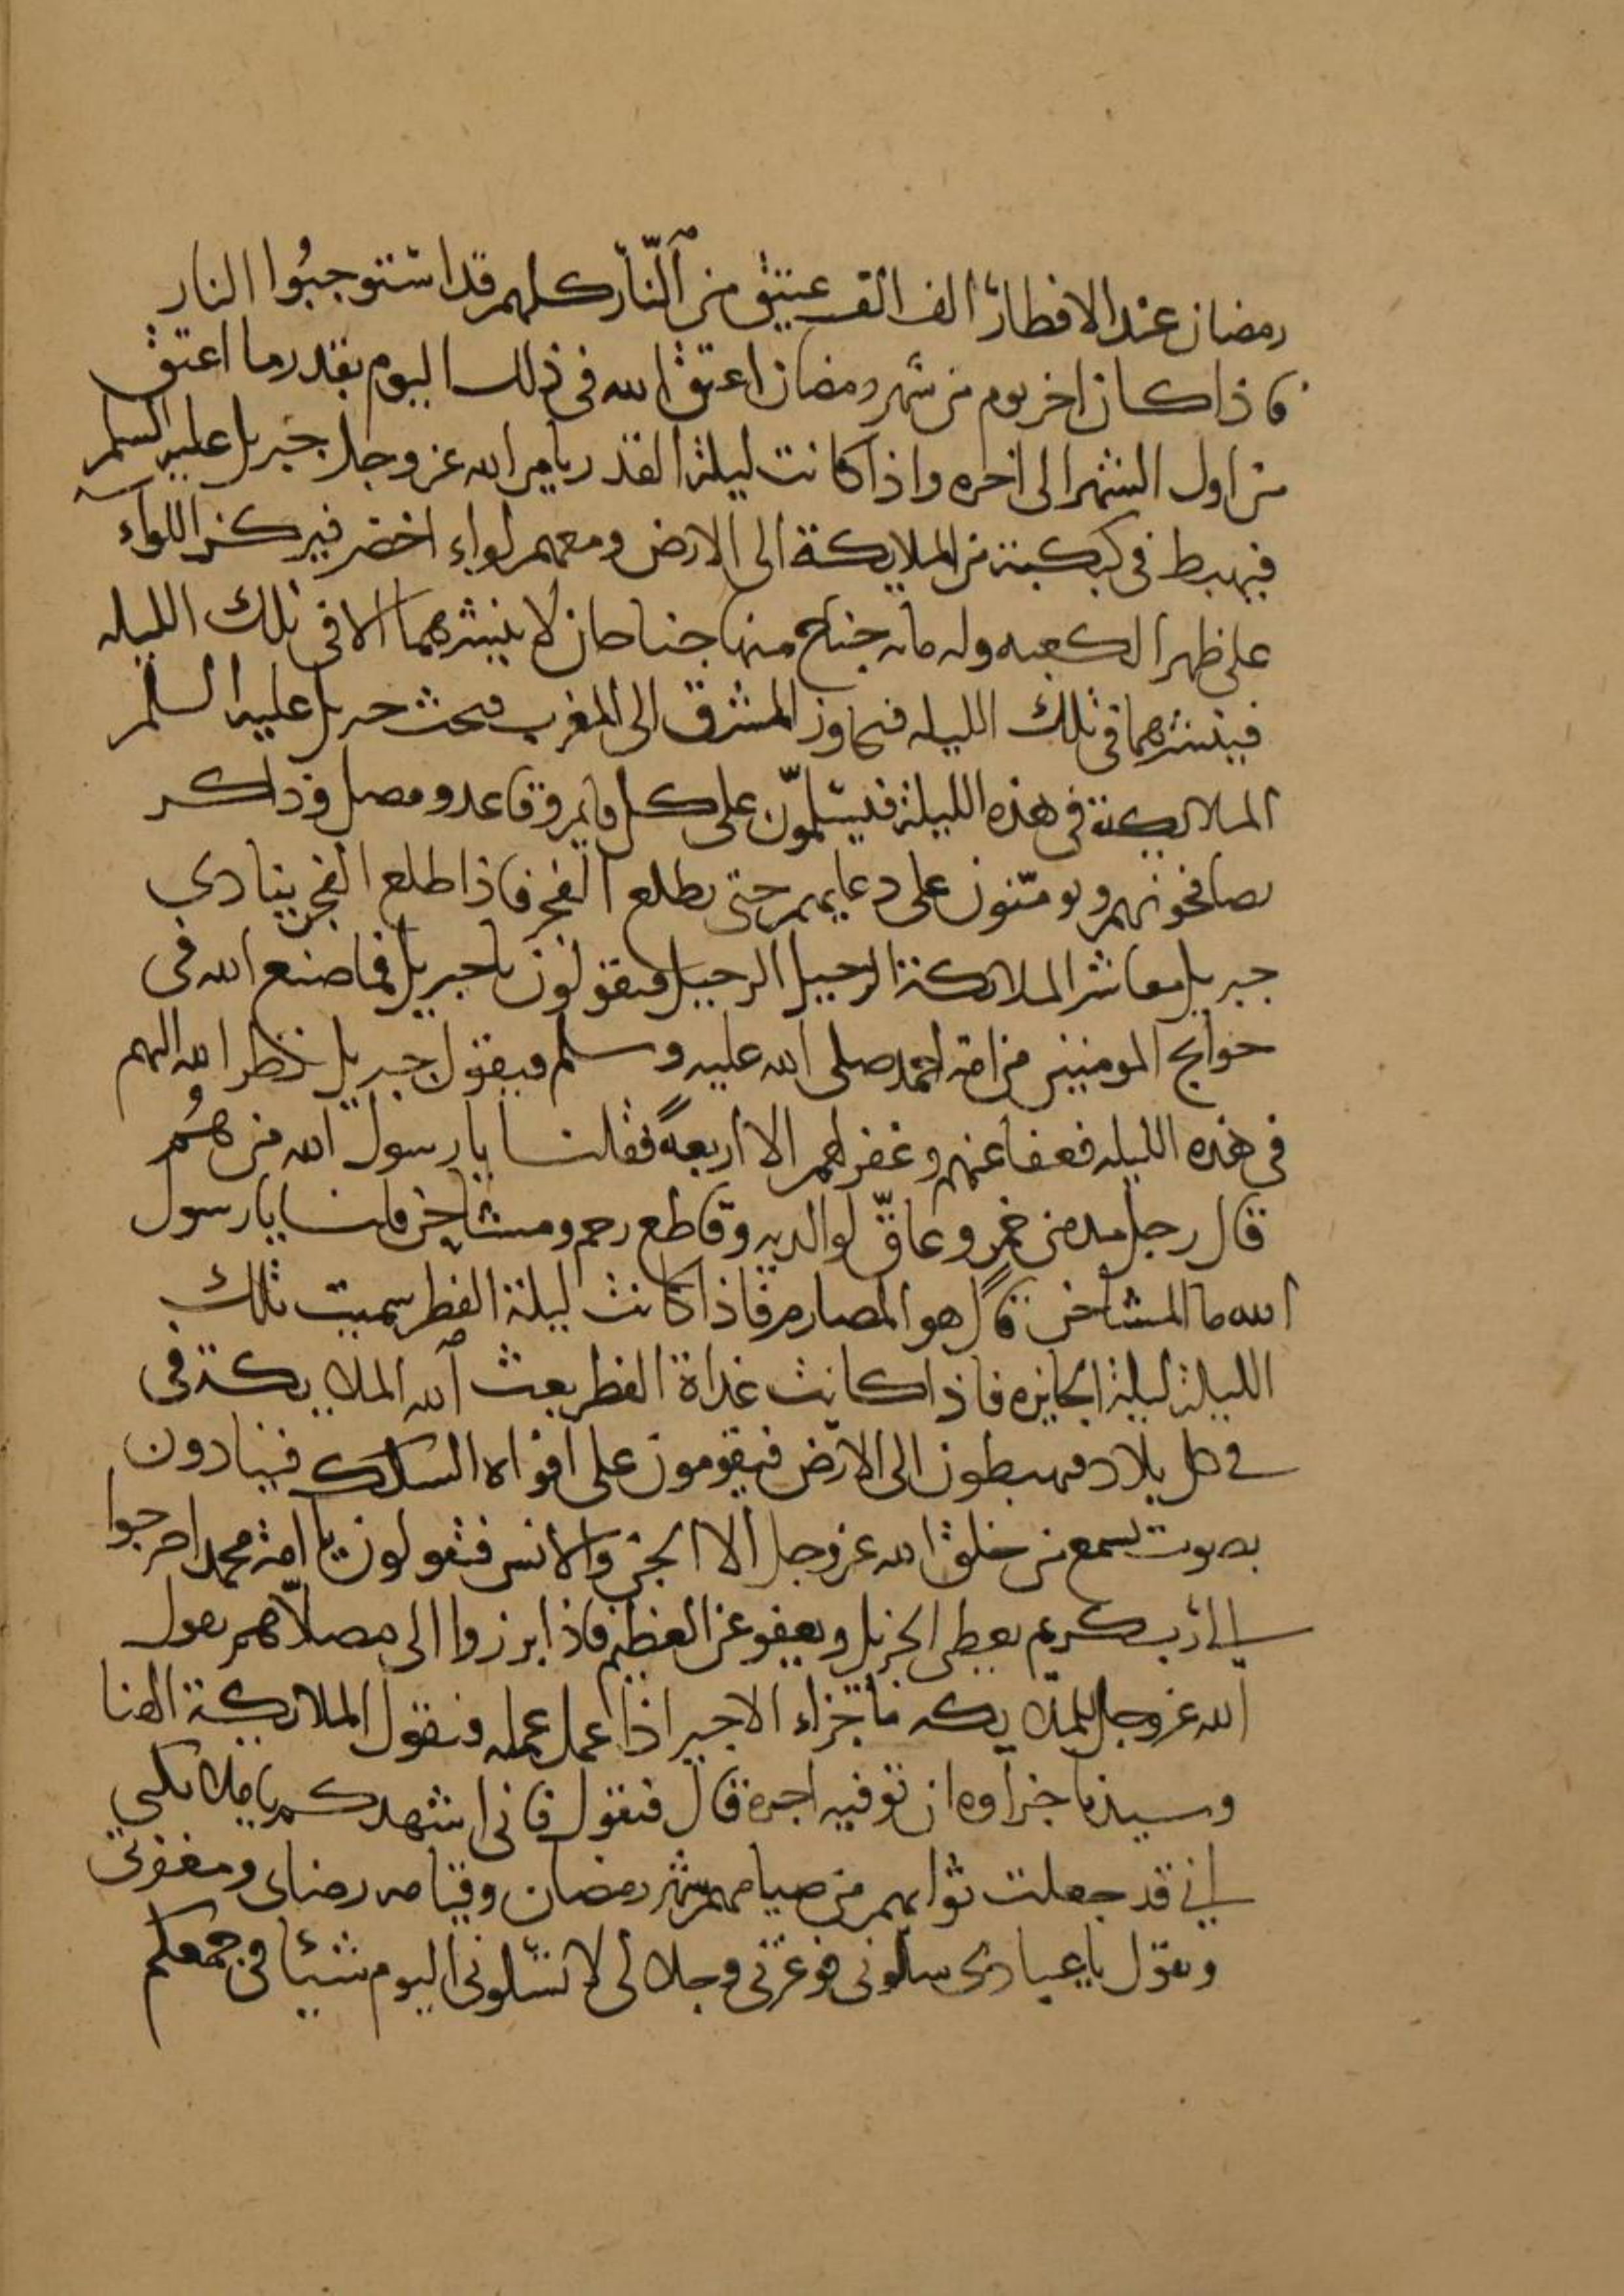 رمضان عند الافطار الف الف عتيق من اَلنّار كلهم قد استوجبُوا النار
فاذا كان اخر يوم من شهر رمضان اعتق الله فى ذلك اليوم بقدر ما اعتق
من اول الشهر الى اخره واذا كانت ليلة القدر يامر الله عز وجل جبريل عليه السلم
فيهبط فى كبكبة من الملايكة الى الارض ومعهم لواء اخضر فيركز اللواء
على ظهر الكعبه وله مايه جناح منها جناحان لا ينشرهما الا فى تلك الليله
فينشرهما فى تلك الليله فيجاوز المشرق الى المغرب فيحث جبريل عليه السلم
الملايكة فى هذه الليلة فيسلمّون على كل قايم وقاعد ومصل وذاكر
يصافحونهم ويومّنون على دعايهم حتى يطلع الفجر فاذا طلع الفجر ينادي
جبريل معاشر الملايكة الرحيل الرحيل فيقولون يا جبريل فما صنع الله فى
حوايج المومنين من امة احمد صلى الله عليه وسلم فيقول جبريل نظر الله اليهم
فى هذه الليله فعفا عنهم وغفر لهم الا اربعةً فقلنا يا رسول الله من هُم
قال رجل مدمن خمر وعاقّ لوالديه وقاطع رحم ومشاحن قلنا يا رسول
الله ما المشاحن قال هو المصارم فاذا كانت ليلة الفطر سميت تلك
الليلة ليلة الجايزه فاذا كانت غداة الفطر يعث الله الملايكة فى
فى كل بلاد فيهبطون الى الارض فيقومون على افواه السكك فينادون
بصوت يسمع من خلق الله عز وجل الا الجن والانس فيقولون يا امة محمد اخرجوا
الى رب كريم يعطى الجزيل ويعفو عن العظيم فاذا برزوا الى مصلاّهم يقول
الله عز وجل للملايكه ما جزاء الاجير اذا عمل عمله فيقول الملايكة الهنا
وسيدنا جزاوه ان توفيه اجره قال فيقول فانى اشهدكم يا ملايكتي
انى قد جعلت ثوابهم من صيامهم شهر رمضان وقيامه رضاى ومغفرتى
ويقول يا عبادى سلونى فوعزتى وجلالى لا تسلونى اليوم شيئا فى جمعكم